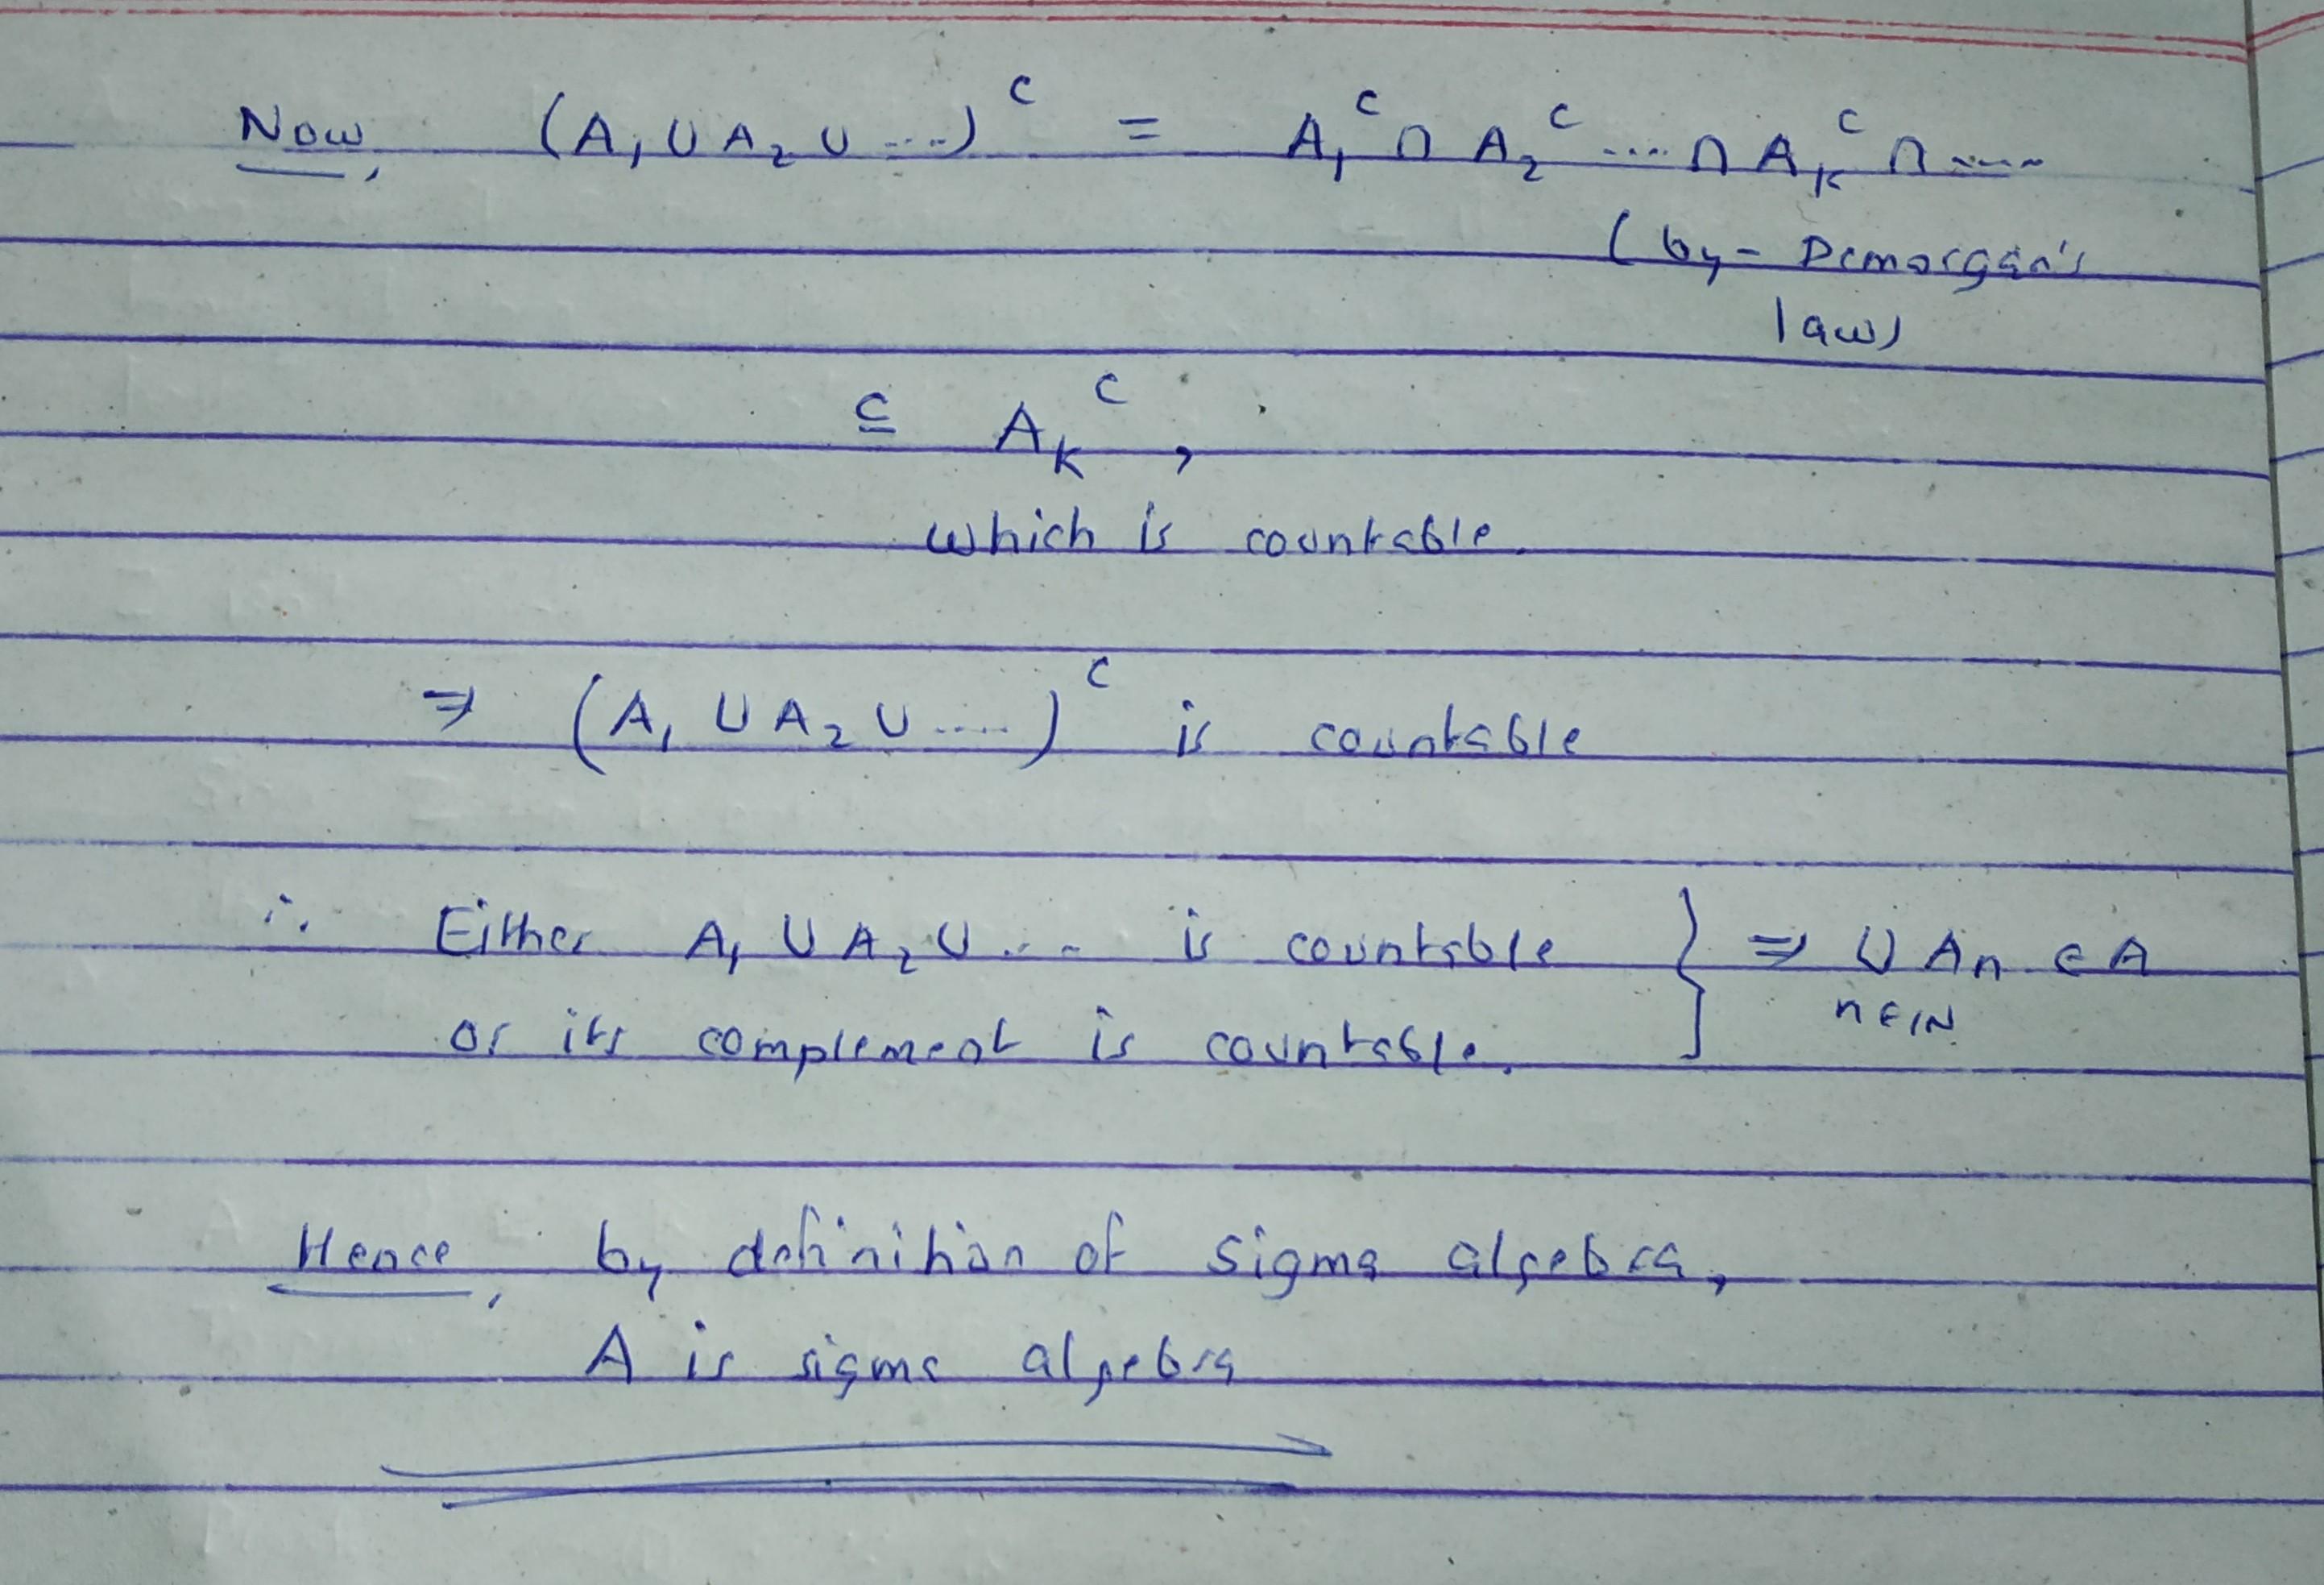 Now, (A₁ ∪ A₂ ∪ ...)ᶜ = A₁ᶜ ∩ A₂ᶜ .... ∩ A_kᶜ ∩ ....
(by - Demorgan's
law)
⊆ A_kᶜ,
which is countable.
⇒ (A₁ ∪ A₂ ∪ ....)ᶜ is countable
∴ Either A₁ ∪ A₂ ∪ ... is countable } ⇒ ∪ Aₙ ∈ A
or its complement is countable. n∈ℕ
Hence, by definition of sigma algebra,
A is sigma algebra